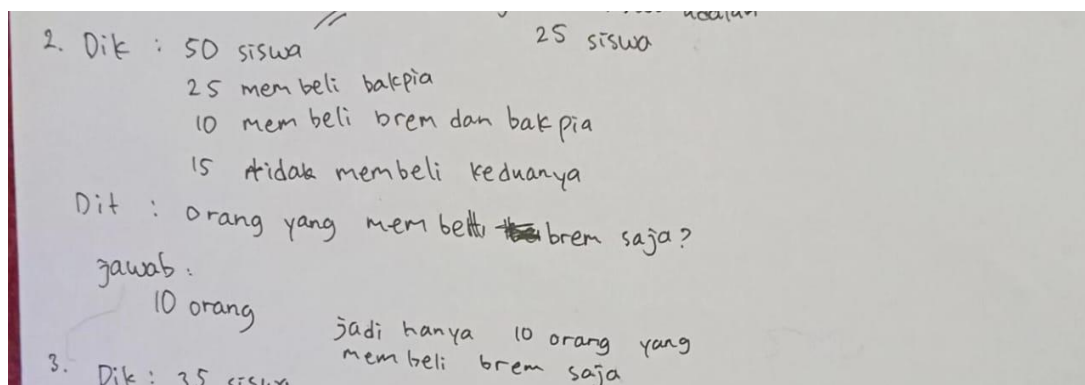 25 siswa
2. Dik : 50 siswa
25 membeli bakpia
10 membeli brem dan bakpia
15 tidak membeli keduanya
Dit : Orang yang membeli brem saja?
Jawab :
10 orang
jadi hanya 10 orang yang
membeli brem saja
3. Dik : 35 siswa